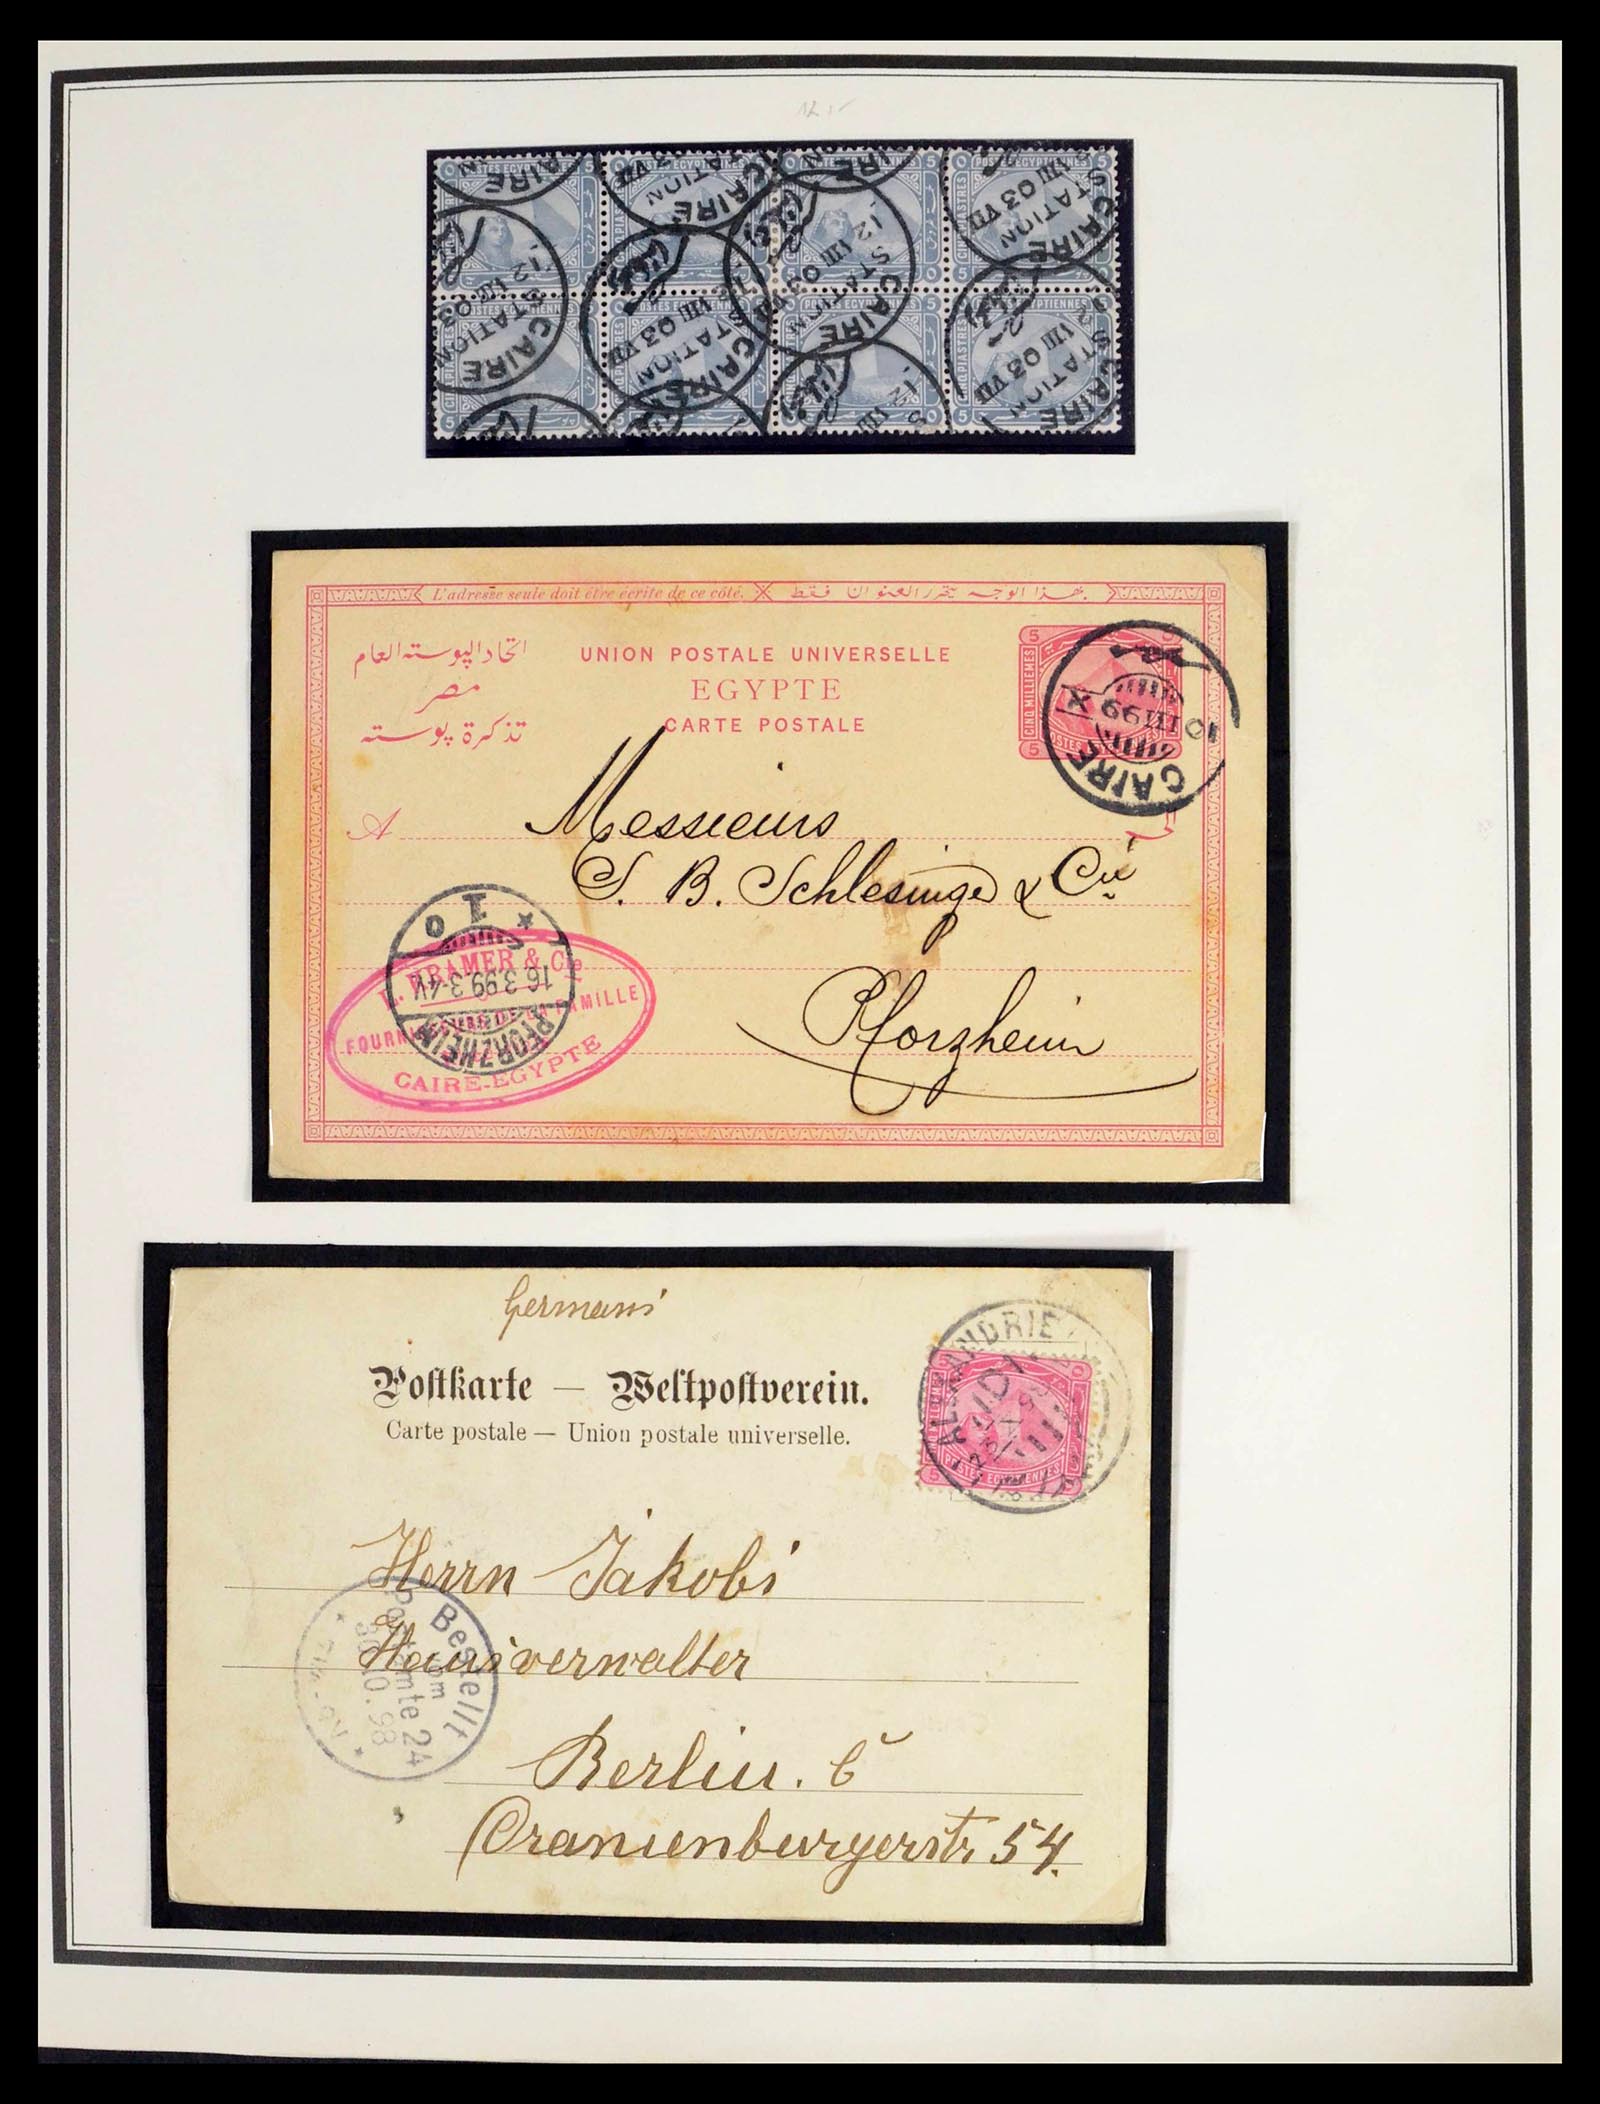 POSTES EGYPTIENNES
CINQ PIASTRES
CAIRE
STATION
12 III 03 VII
L'adresse seule doit être écrite de ce côté.
بهذا الوجه يتحرر العنوان فقط
اتحاد البوسته العام
مصر
تذكرة بوسته
UNION POSTALE UNIVERSELLE
EGYPTE
CARTE POSTALE
5
CINQ MILLIEMES
CAIRE
10 III 99 X
A
Messieurs
S. B. Schlesinger & Cie
Pforzheim
PFORZHEIM
16.3.99.3-4N.
KRAMER & Cie
FOURNISSEURS DE LA FAMILLE
CAIRE-EGYPTE
Germani
Postkarte — Weltpostverein.
Carte postale — Union postale universelle.
ALEXANDRIE
POSTES EGYPTIENNES
5
Herrn Jakobi
Hausverwalter
Berlin. C
Oranienburgerstr. 54.
Bestellt
vom
Postamte 24
30.10.98